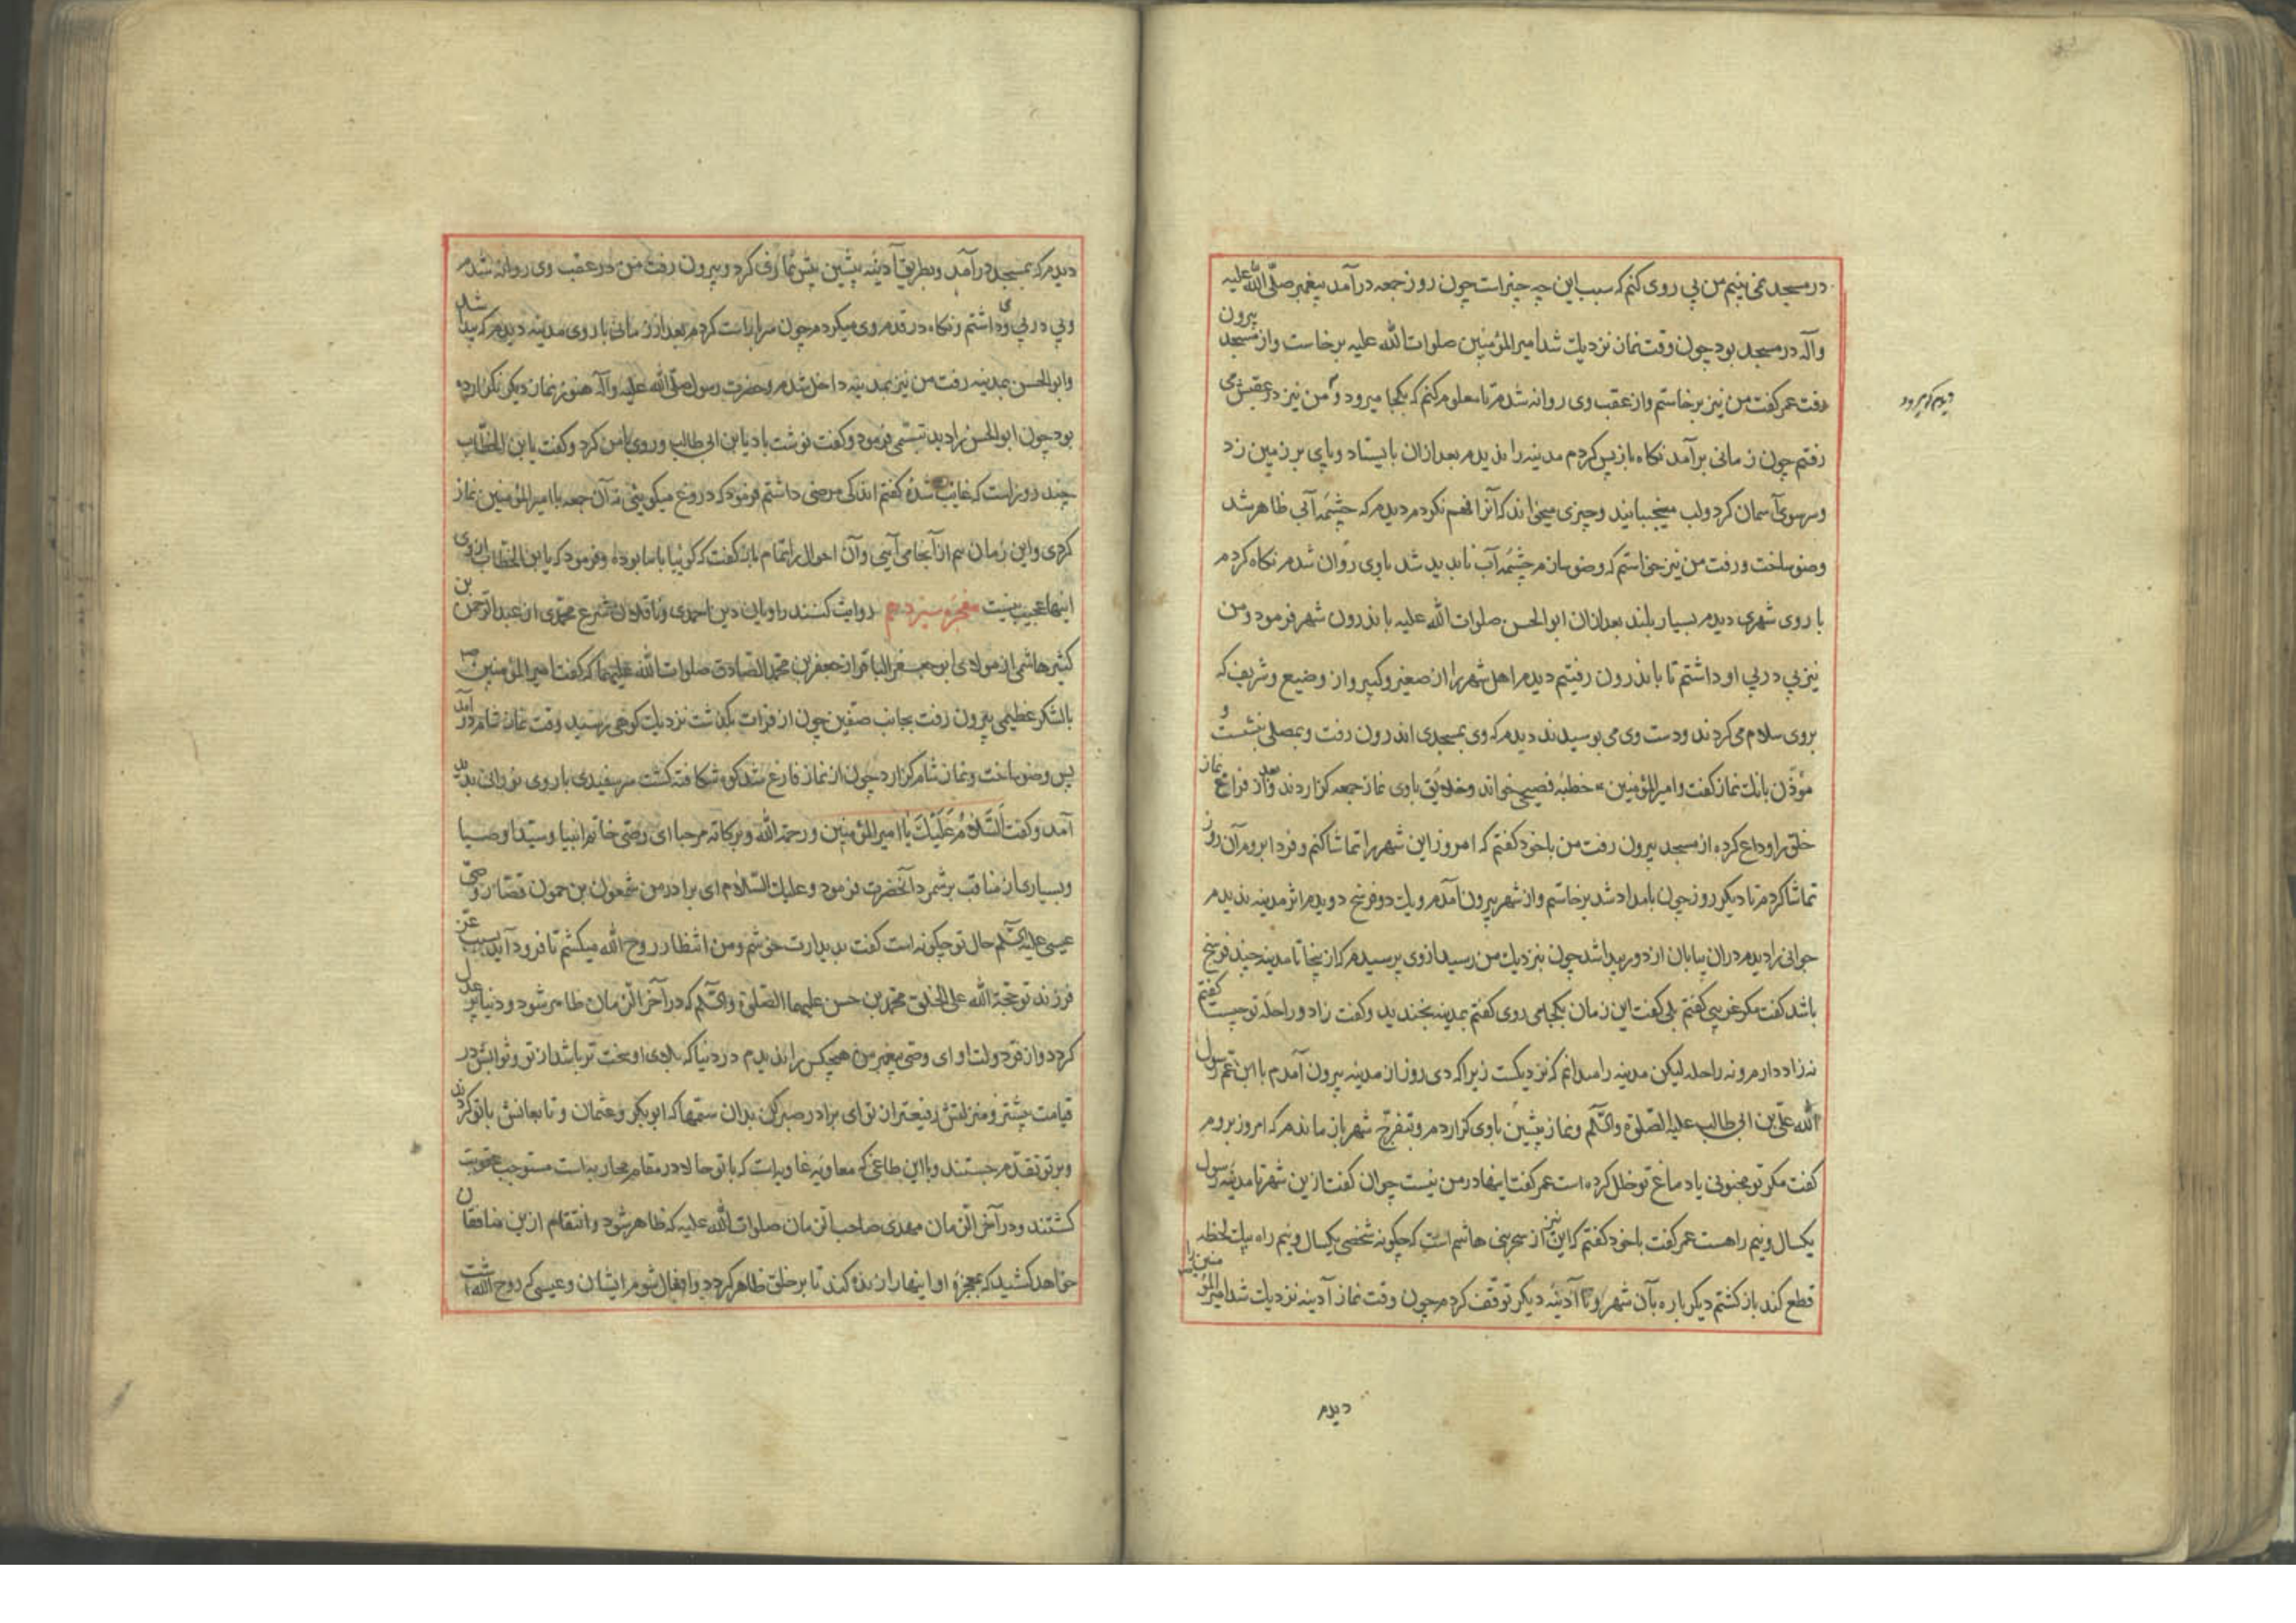 در مسجد نمی بینم من پی روی کنم که سبب این چه چیز است چون روز جمعه در آمد پیغمبر صلّی اللّه علیه
وآله در مسجد بود چون وقت نماز نزدیك شد امیر المؤمنین صلوات اللّه علیه برخاست واز مسجد بیرون
رفت عمر کفت من نیز برخاستم واز عقب وی روانه شدم تا معلوم کنم که بکجا میرود ومن نیز در عقبش می
رفتم چون زمانی برآمد نکاه باز پس کردم مدینه را ندیدم بعد ازان بایستاد وپای بر زمین زد
وسر سوی آسمان کرد ولب میجنبانید وچیزی میخواند که آنرا فهم نکردم دیدم که چشمه آبی ظاهر شد
وضو ساخت ورفت من نیز خواستم که وضو سازم چشمه آب ناپدید شد باوی روان شدم نکاه کردم
باروی شهری دیدم بسیار بلند بعد ازان ابو الحسن صلوات اللّه علیه باندرون شهر فرمود ومن
نیز پی در پی او داشتم تا باندرون رفتیم دیدم اهل شهر را از صغیر وکبیر واز وضیع وشریف که
بروی سلام می کردند ودست وی می بوسیدند دیدم که وی بمسجدی اندرون رفت وبمصلی بنشست و
مؤذن بانك نماز کفت وامیر المؤمنین خطبه فصیح خواند وخلایق باوی نماز جمعه کزاردند وبعد از فراغ نماز
خلق را وداع کرده از مسجد بیرون رفت من باخود کفتم که امروز این شهر را تماشا کنم وفردا بروم آن روز
تماشا کردم تا دیکر روز چون بامداد شد برخاستم واز شهر بیرون آمدم ویك دو فرسخ دویدم اثر مدینه ندیدم
جوانی را دیدم دران بیابان از دور پیدا شد چون بنزدیك من رسید ازوی پرسیدم که از ینجا تا مدینه چند فرسخ
باشد کفت مکر غریبی کفتم بلی کفت این زمان بکجا می روی کفتم بمدینه بخندید وکفت زاد وراحله تو چیست کفتم
نه زاد دارم ونه راحله لیکن مدینه را میدانم که نزدیکست زیرا که دی روز از مدینه بیرون آمدم با ابن عم رسول
اللّه علی بن ابی طالب علیه الصلوة والسّلم ونماز پیشین باوی کزاردم وبتفرّج شهر باز ماندم که امروز بروم
کفت مکر تو مجنونی یا دماغ تو خلل کرده است عمر کفت اینها در من نیست جوان کفت ازین شهر تا مدینه رسول
یکسال ونیم راهست عمر کفت باخود کفتم که این نیز از سحر بنی هاشم است که چکونه شخصی یکسال ونیم راه بیك لحظه
قطع کند باز کشتم دیکر باره بآن شهر وتا آدینه دیکر توقّف کردم چون وقت نماز آدینه نزدیك شد امیر المؤمنین را
دیدم
دیدم که میرود
دیدم که بمسجد درآمد وبطریق آدینه پیشین پیش نمازی کرد وبیرون رفت من در عقب وی روانه شدم
وپی در پی وی داشتم ونکاه در قدم وی میکردم چون سر بر راست کردم بعد از زمانی باروی مدینه دیدم که پیدا شد
وابو الحسن بمدینه رفت من نیز بمدینه داخل شدم وحضرت رسول صلّی اللّه علیه وآله هنوز نماز دیکر نکزارده
بود چون ابو الحسن را دید تبسّمی فرمود وکفت خوشت باد یا بن ابی طالب وروی بامن کرد وکفت یا بن الخطّاب
چند روز است که غایب شدهٔ کفتم اندکی مرضی داشتم فرمود که دروغ میکویی نه آن جمعه با امیر المؤمنین نماز
کردی واین زمان هم از آنجا می آیی وآن احوال را تمام باز کفت که کوئیا باما بوده وفرمود که یا بن الخطّاب از وی
اینها عجیب نیست معجزه سیزدهم روایت کنند راویان دین احمدی وناقلان شرع محمّدی از عبد الرّحمن بن
کثیر هاشمی از مولادی ابو جعفر الباقر از جعفر بن محمّد الصّادق صلوات اللّه علیهما که کفت امیر المؤمنین
بالشکر عظیمی بیرون رفت بجانب صفّین چون از فرات بکذشت نزدیك کوهی رسید وقت نماز شام درآمد
پس وضو ساخت ونماز شام کزارد چون از نماز فارغ شد کوه شکافته کشت مرد سفیدی با روی نورانی پدید
آمد وکفت السّلام علیك یا امیر المؤمنین ورحمة اللّه وبرکاته مرحبا ای وصی خاتم انبیا وسیّد اوصیا
وبسیاری از مناقب برشمرد آنحضرت فرمود وعلیك السّلام ای برادر من شمعون بن حمون وصیّ
عیسی علیه السّلم حال تو چکونه است کفت بدیدارت خوشم ومن انتظار روح اللّه میکشم تا فرود آید بسبب عزّ
فرزند تو حجّة اللّه علی الخلق محمّد بن حسن علیهما الصّلوة والسّلم که در آخر الزّمان ظاهر شود ودنیا پر عدل
کردد واز فرّ دولت او ای وصی پیغمبر من هیچکس را ندیدم در دنیا که بلای او سخت تر باشد از تو وثوابش در
قیامت بیشتر ومنزلتش رفیعتر از تو ای برادر صبر کن بدان ستمها که ابو بکر وعثمان وتابعانش باتو کردند
وبر تو تقدّم جستند وبا این طاغی که معاویه غاویه است که باتو حالا در مقام محاربه است مستوجب عقوبت
کشتند ودر آخر الزّمان مهدی صاحب الزّمان صلوات اللّه علیه که ظاهر شود وانتقام ازین منافقان
خواهد کشید که بمعجزه او اینها را زنده کند تا بر خلق ظاهر کردد وافعال شوم ایشان وعیسی که روح اللّه است